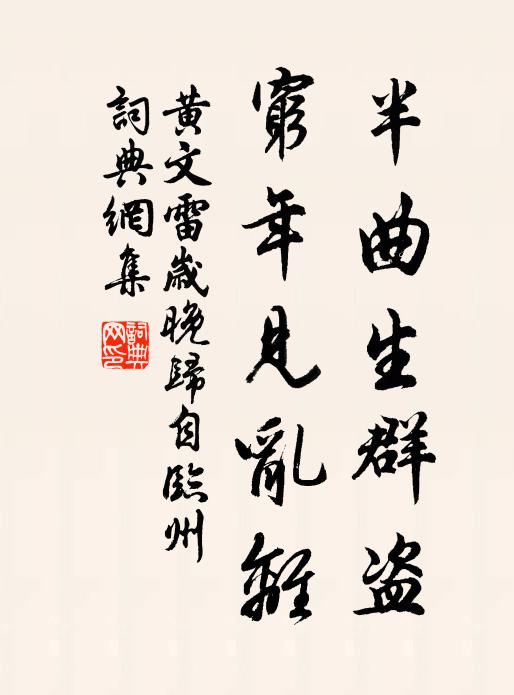 半曲生群盗
窮年見亂離
黄文雷歲晚歸自臨州
詞典網集
詞典網印